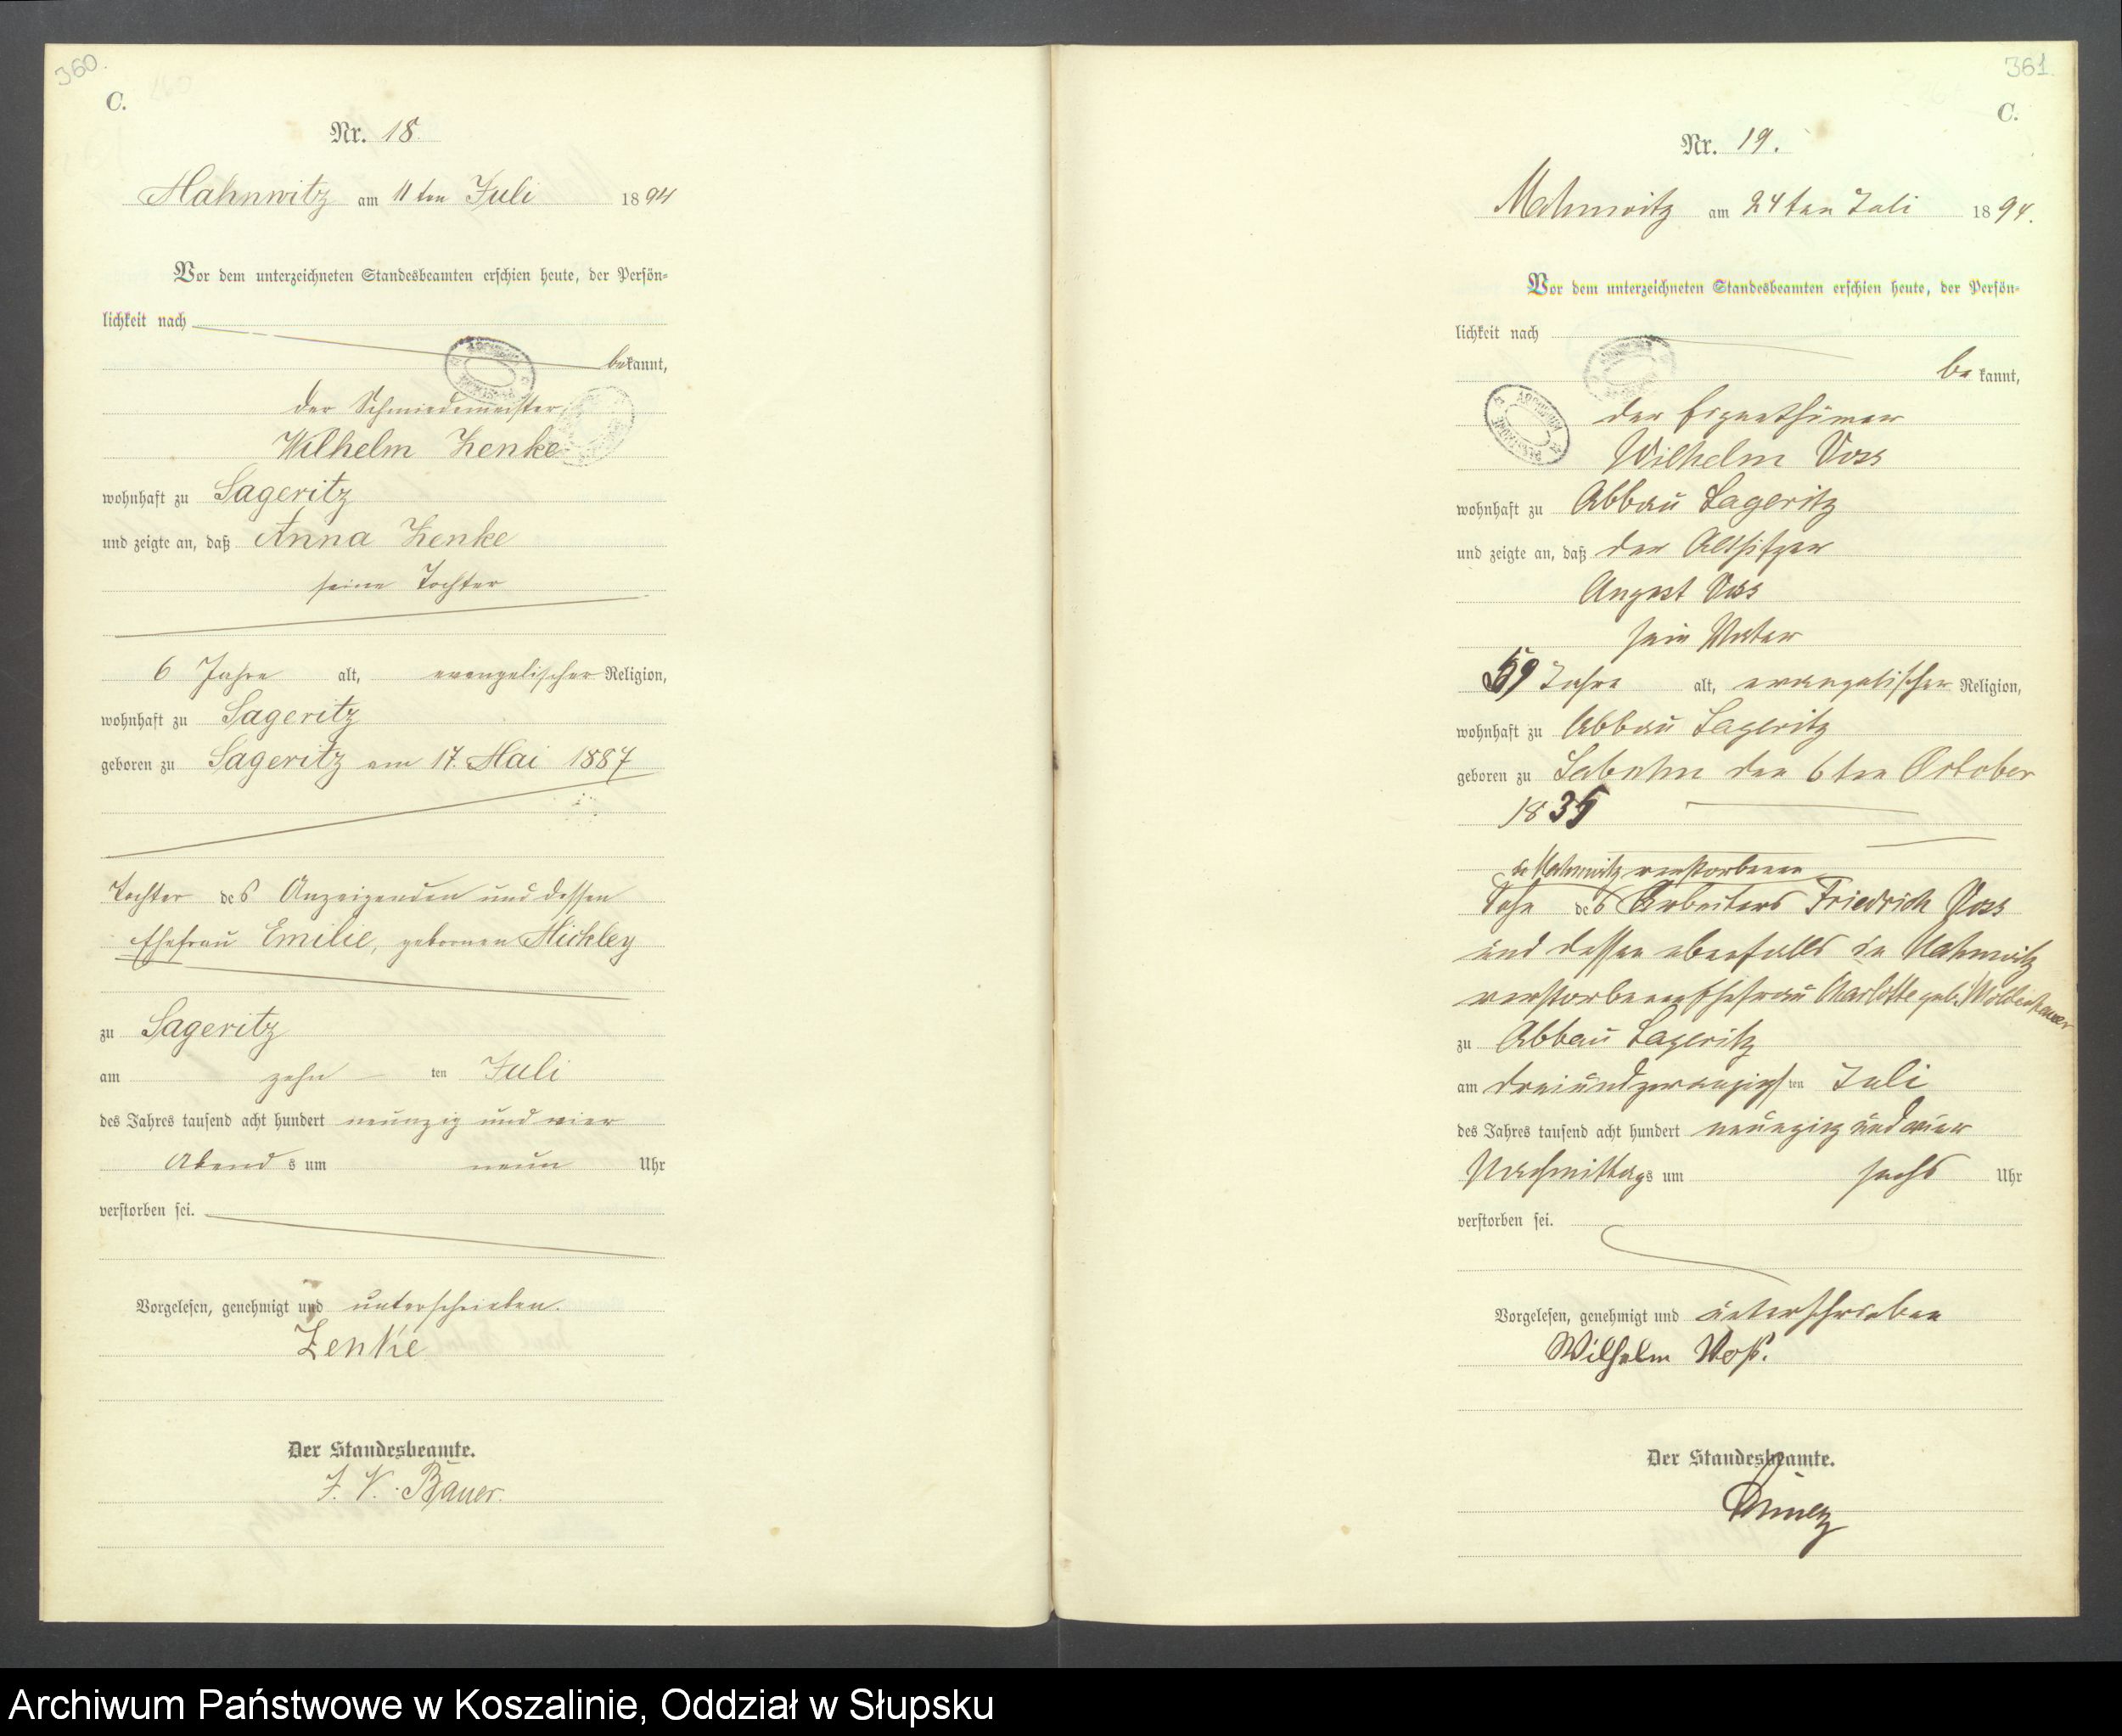 360.
C.
Nr. 18
Mahnwitz am 11 ten Juli 1894
Vor dem unterzeichneten Standesbeamten erschien heute, der Persön-
lichkeit nach
bekannt,
der Schmiedemeister
Wilhelm Zenke
wohnhaft zu Sageritz
und zeigte an, daß Anna Zenke
seine Tochter
6 Jahre alt, evangelischer Religion,
wohnhaft zu Sageritz
geboren zu Sageritz am 17. Mai 1887
Tochter des Anzeigenden und dessen
Ehefrau Emilie, gebornen Mickley
zu Sageritz
am zehn ten Juli
des Jahres tausend acht hundert neunzig und vier
Abend s um neun Uhr
verstorben sei.
Vorgelesen, genehmigt und unterschrieben.
Zenke
Der Standesbeamte.
J. V. Bauer.
361.
C.
Nr. 19.
Mahnwitz am 24ten Juli 1894.
Vor dem unterzeichneten Standesbeamten erschien heute, der Persön-
lichkeit nach
be kannt,
der Eigenthümer
Wilhelm Voss
wohnhaft zu Abbau Sageritz
und zeigte an, daß der Altsitzer
August Voss
sein Vater
59 Jahre alt, evangelischer Religion,
wohnhaft zu Abbau Sageritz
geboren zu Labuhn den 6ten October
1835
in Mahnwitz verstorbenen
Sohn des Arbeiters Friedrich Voss
und dessen ebenfalls in Mahnwitz
verstorbenen Ehefrau Charlotte geb. Moldenhauer
zu Abbau Sageritz
am dreiundzwanzigsten Juli
des Jahres tausend acht hundert neunzig und vier
Nachmittags um sechs Uhr
verstorben sei.
Vorgelesen, genehmigt und unterschrieben
Wilhelm Voß.
Der Standesbeamte.
Archiwum Państwowe w Koszalinie, Oddział w Słupsku